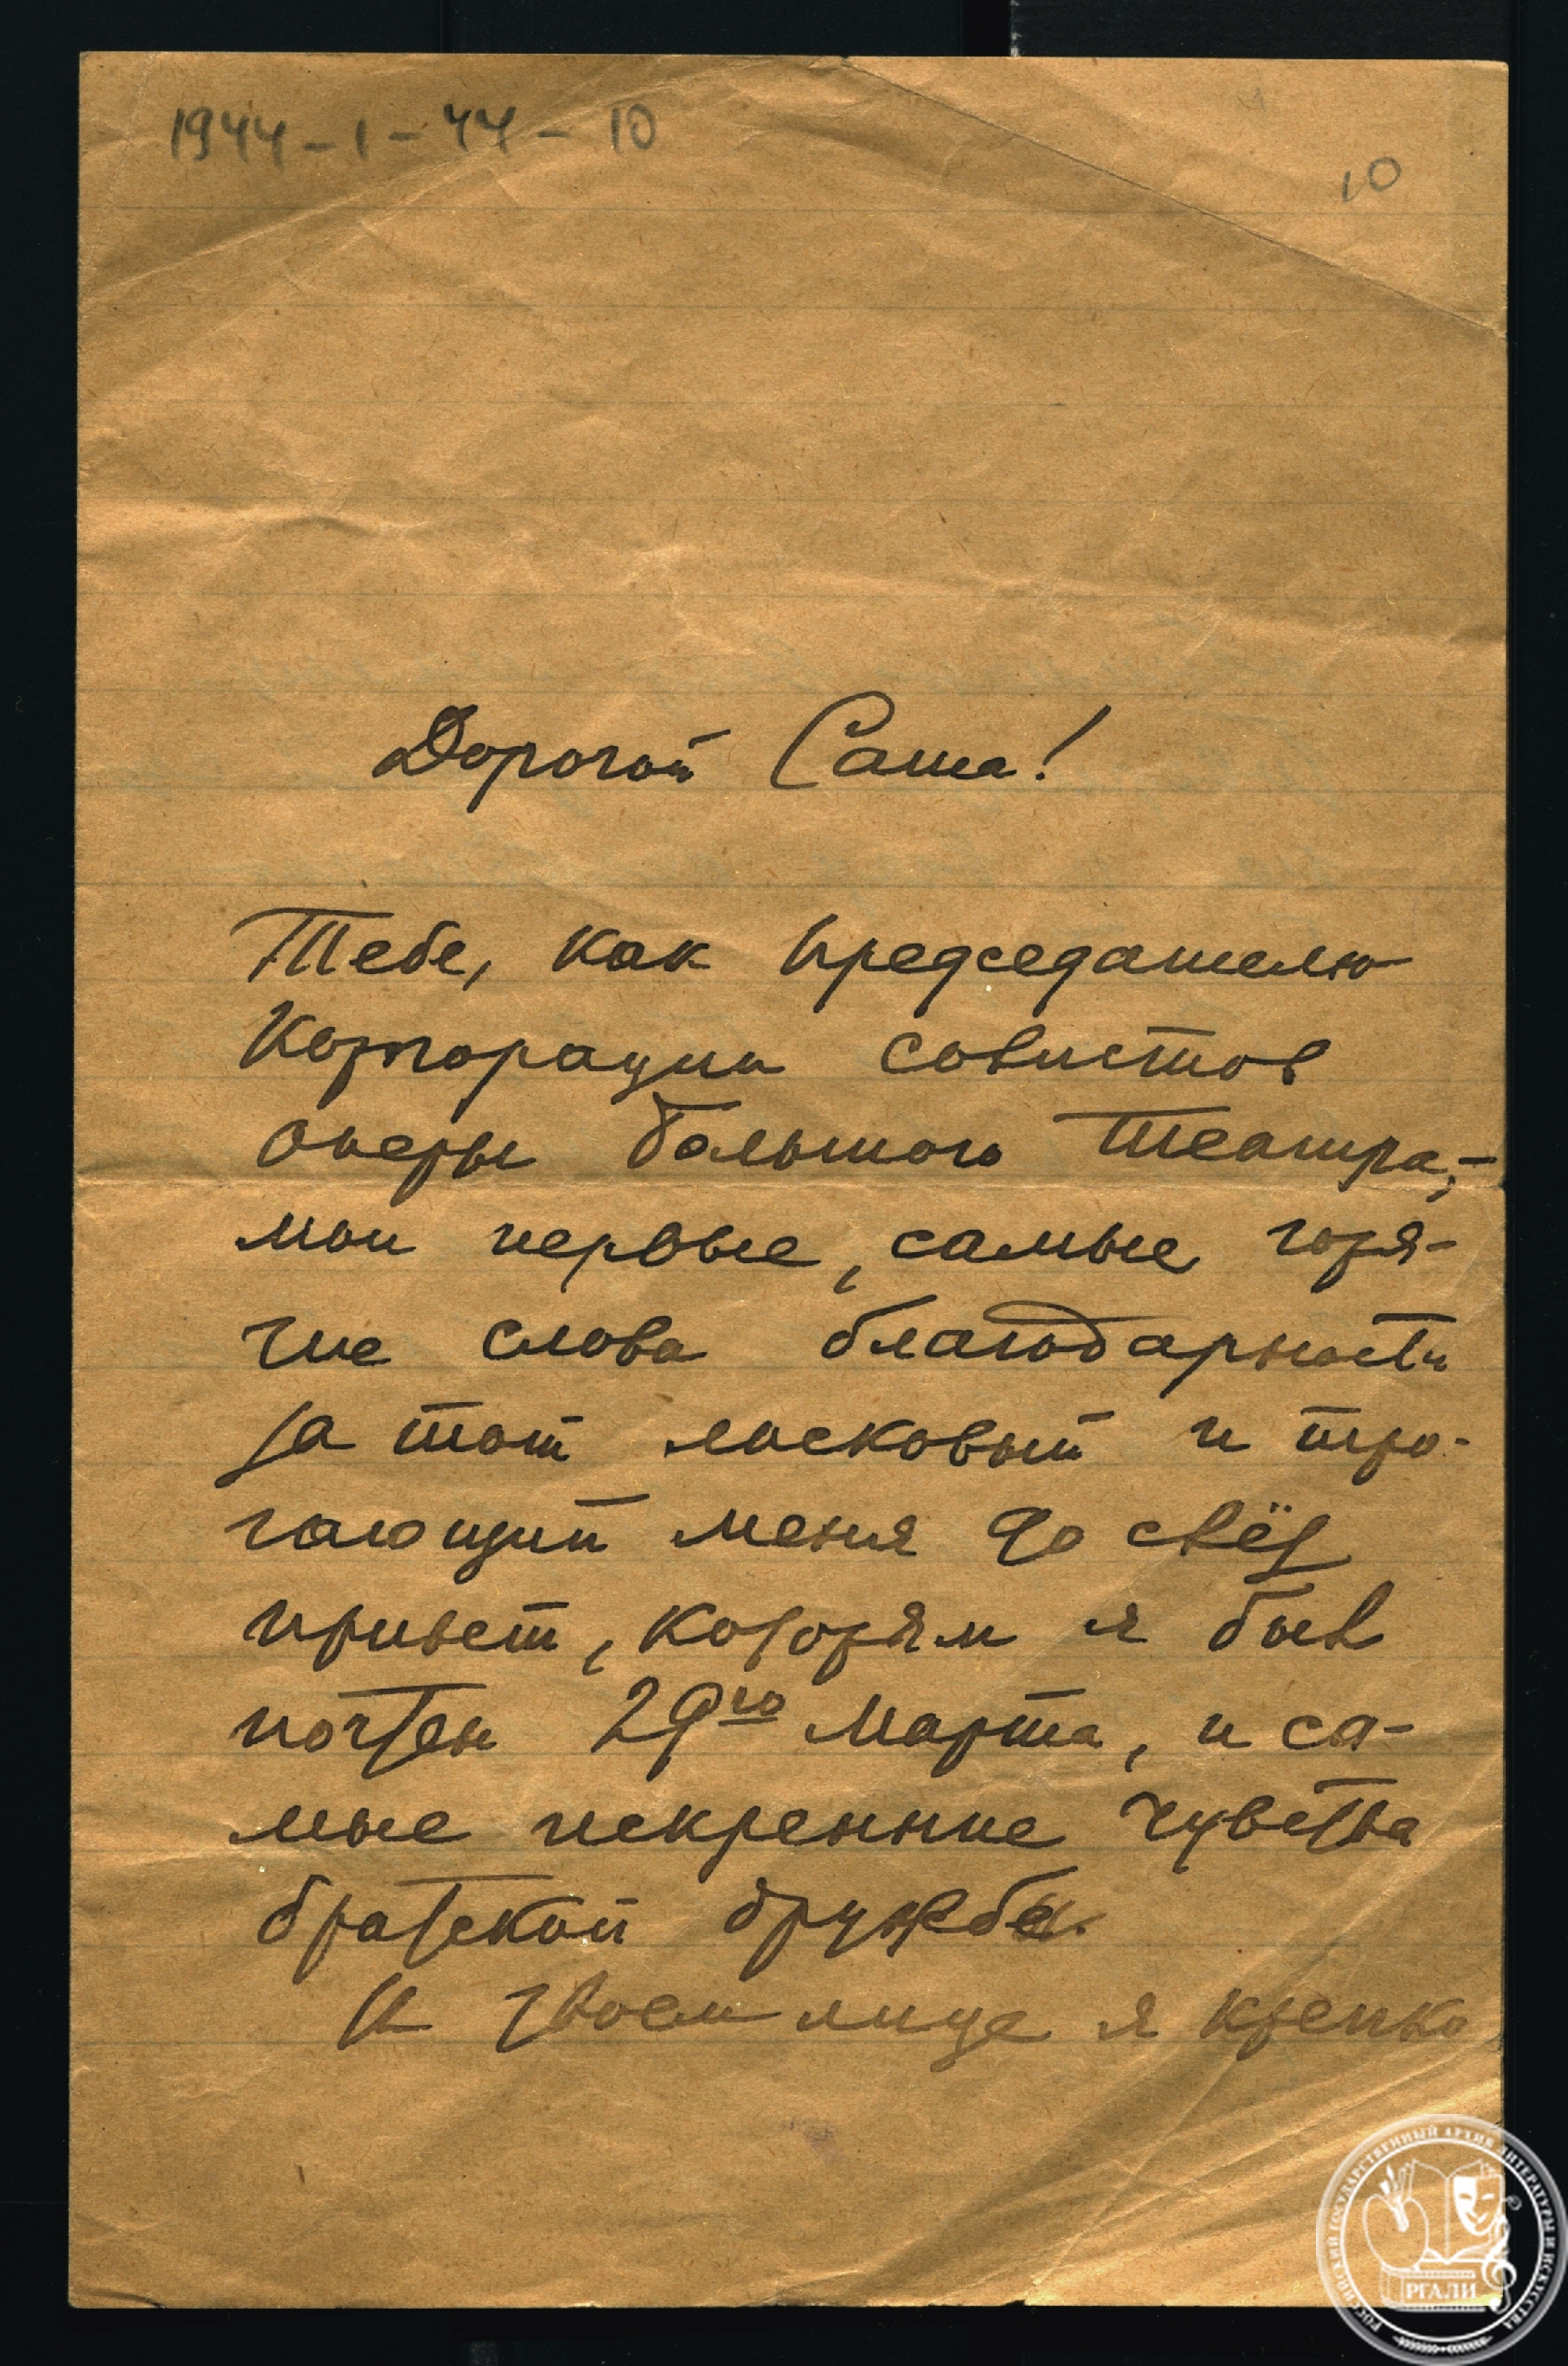 1944-1-44-10
10
Дорогой Саша!
Тебе, как председателю
Корпорации солистов
оперы Большого Театра,-
мои первые, самые горя-
чие слова благодарности
за тот ласковый и тро-
гающий меня до слёз
привет, которым я был
почтен 29го Марта, и са-
мые искренние чувства
братской дружбы.
В твоем лице я крепко
РОССИЙСКИЙ ГОСУДАРСТВЕННЫЙ АРХИВ ЛИТЕРАТУРЫ И ИСКУССТВА
РГАЛИ